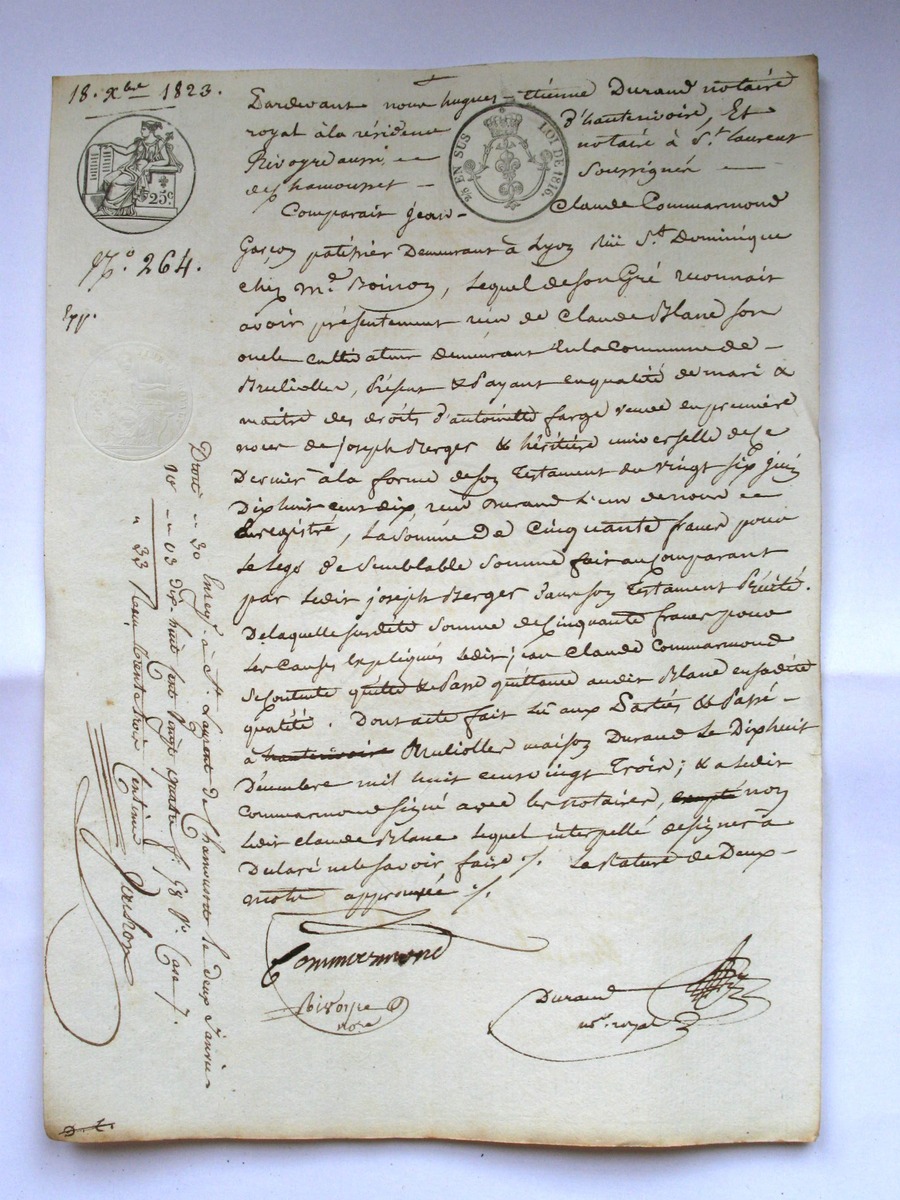 18. Xbre 1823.
25c.
2/8 EN SUS LOI DE 1816.
N.º 264.
Exp.
Pardevant nous hugues-étienne Durand notaire
royal à la résidence d'hauterivoire, Et
Rivoyre aussi notaire à St. Laurent
de Chamousset - Soussignés -
Comparait Jean-Claude Commarmond
Garçon patissier Demeurant à Lyon Rüe St. Dominique
chez Mr. Boinon, lequel de Son Gré reconnait
avoir présentement reçu de Claude Blanc son
oncle cultivateur demeurant En la Commune de-
Brulliolles, Présent & Payant en qualité de mari &
maitre des droits d'antoinette farge veuve en première
noces de Joseph Berger & héritière universelle de Ce
Dernier à la forme de son Testament du vingt Six Juin
Dix huit cent dix, reçu Durand L'un de nous
Enregistré, La Somme de Cinquante francs pour
Le legs de Semblable Somme fait au Comparant
par Ledit joseph Berger dans son Testament Précité.
De laquelle susdite Somme de Cinquante francs pour
Les Causes Expliqués Ledit jean Claude Commarmond
Se Contente quitte & Passe quittance audit Blanc en sadite
qualité. Dont acte fait Lu aux Parties & Passé-
à hauterivoire Brulioller maison Durand Le Dix huit
Décembre mil huit cent vingt Trois; & a Ledit
Commarmond signé avec les notaires, excepté non
Ledit Claude Blanc Lequel interpellé de signer a
Déclaré ne le savoir faire ./. La Rature de Deux-
mots approuvée ./.
Commarmond
Rivoire
nore
Durand
nre. royal
Droit .. 30
10 .. 03
" 33
Enregé. à St. Laurent de Chamousset le deux Janvier
dix-huit cent vingt quatre f. 78 Vo. Case 7.
Reçu trente trois Centimes
D. E.